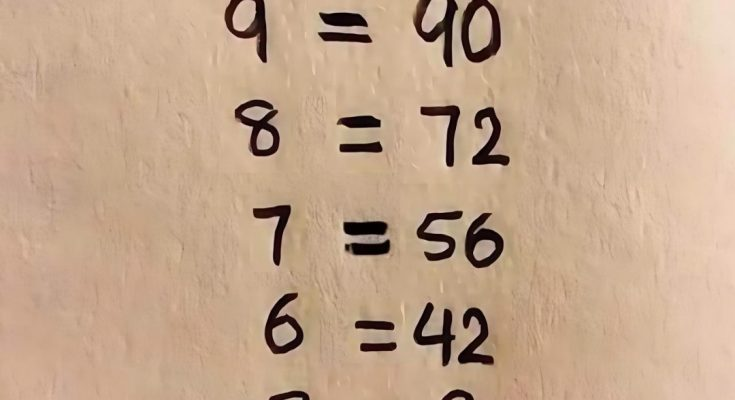 9 = 90
8 = 72
7 = 56
6 = 42